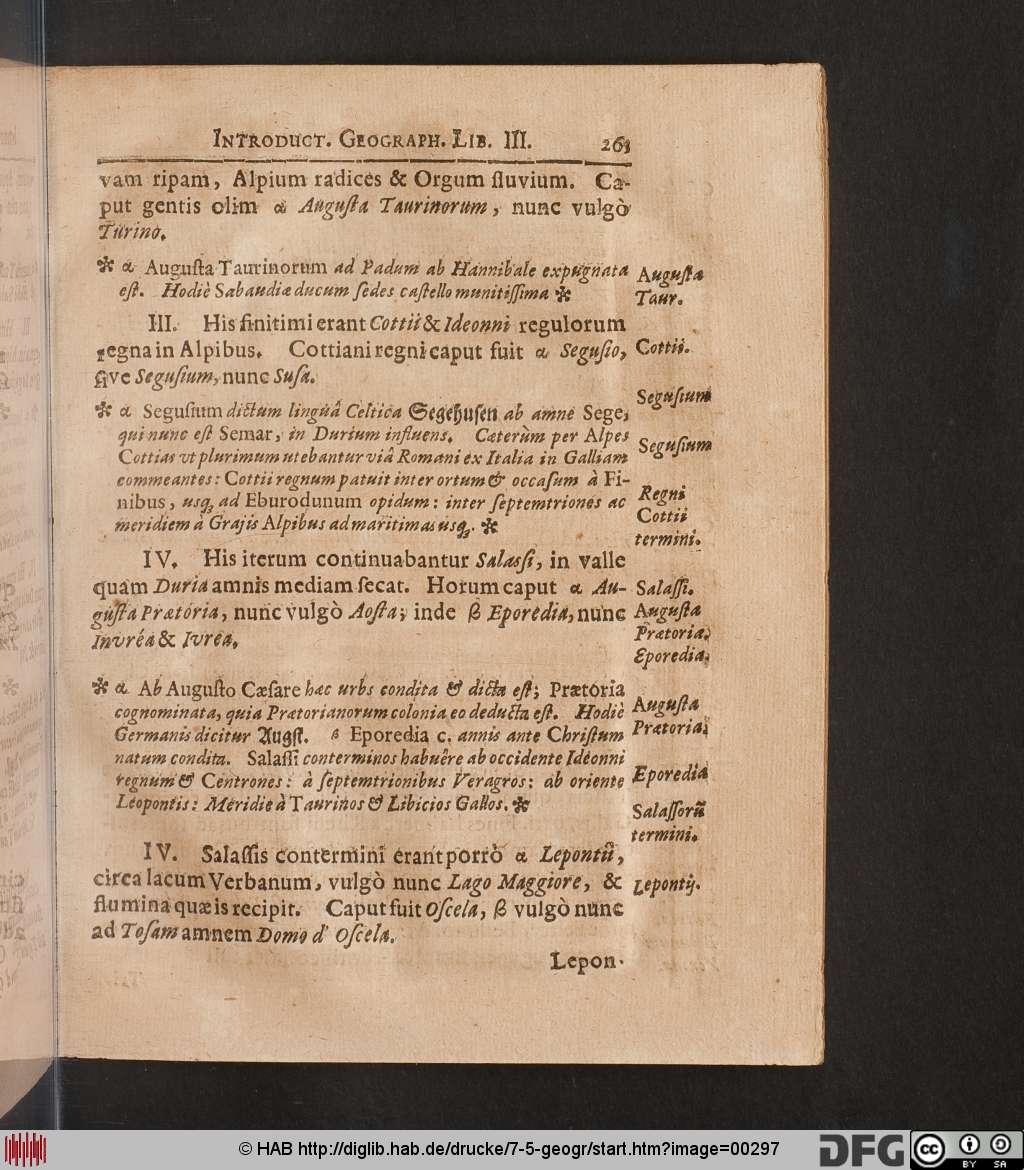 INTRODUCT. GEOGRAPH. LIB. III. 263
vam ripam, Alpium radices & Orgum fluvium. Ca-
put gentis olim α Augusta Taurinorum, nunc vulgò
Turino.
* α Augusta Taurinorum ad Padum ab Hannibale expugnata
est. Hodiè Sabaudiæ ducum sedes castello munitissima *
Augusta
Taur.
III. His finitimi erant Cottii & Ideonni regulorum
regna in Alpibus. Cottiani regni caput fuit α Segusio,
sive Segusium, nunc Susa.
Cottii.
Segusium
* α Segusium dictum linguâ Celtica Segehusen ab amne Sege,
qui nunc est Semar, in Durium influens. Cæterùm per Alpes
Cottias vt plurimum utebantur viâ Romani ex Italia in Galliam
commeantes: Cottii regnum patuit inter ortum & occasum à Fi-
nibus, usq; ad Eburodunum opidum: inter septemtriones ac
meridiem à Grajis Alpibus ad maritimas usq;. *
Segusium
Regni
Cottii
termini.
IV. His iterum continuabantur Salassi, in valle
quam Duria amnis mediam secat. Horum caput α Au-
gusta Prætoria, nunc vulgò Aosta; inde β Eporedia, nunc
Invréa & Ivrea.
Salassi.
Augusta
Prætoria.
Eporedia.
* α Ab Augusto Cæsare hæc urbs condita & dicta est; Prætoria
cognominata, quia Prætorianorum colonia eo deducta est. Hodiè
Germanis dicitur Augst. β Eporedia c. annis ante Christum
natum condita. Salassi conterminos habuêre ab occidente Ideonni
regnum & Centrones: à septemtrionibus Veragros: ab oriente
Leopontis: Meridie à Taurinos & Libicios Gallos. *
Augusta
Prætoria.
Eporedia
Salassorū
termini.
IV. Salassis contermini erant porrò α Lepontii,
circa lacum Verbanum, vulgò nunc Lago Maggiore, &
flumina quæ is recipit. Caput fuit Oscela, β vulgò nunc
ad Tosam amnem Domo d' Oscela.
Lepontij.
Lepon-
© HAB http://diglib.hab.de/drucke/7-5-geogr/start.htm?image=00297
DFG
cc
BY SA